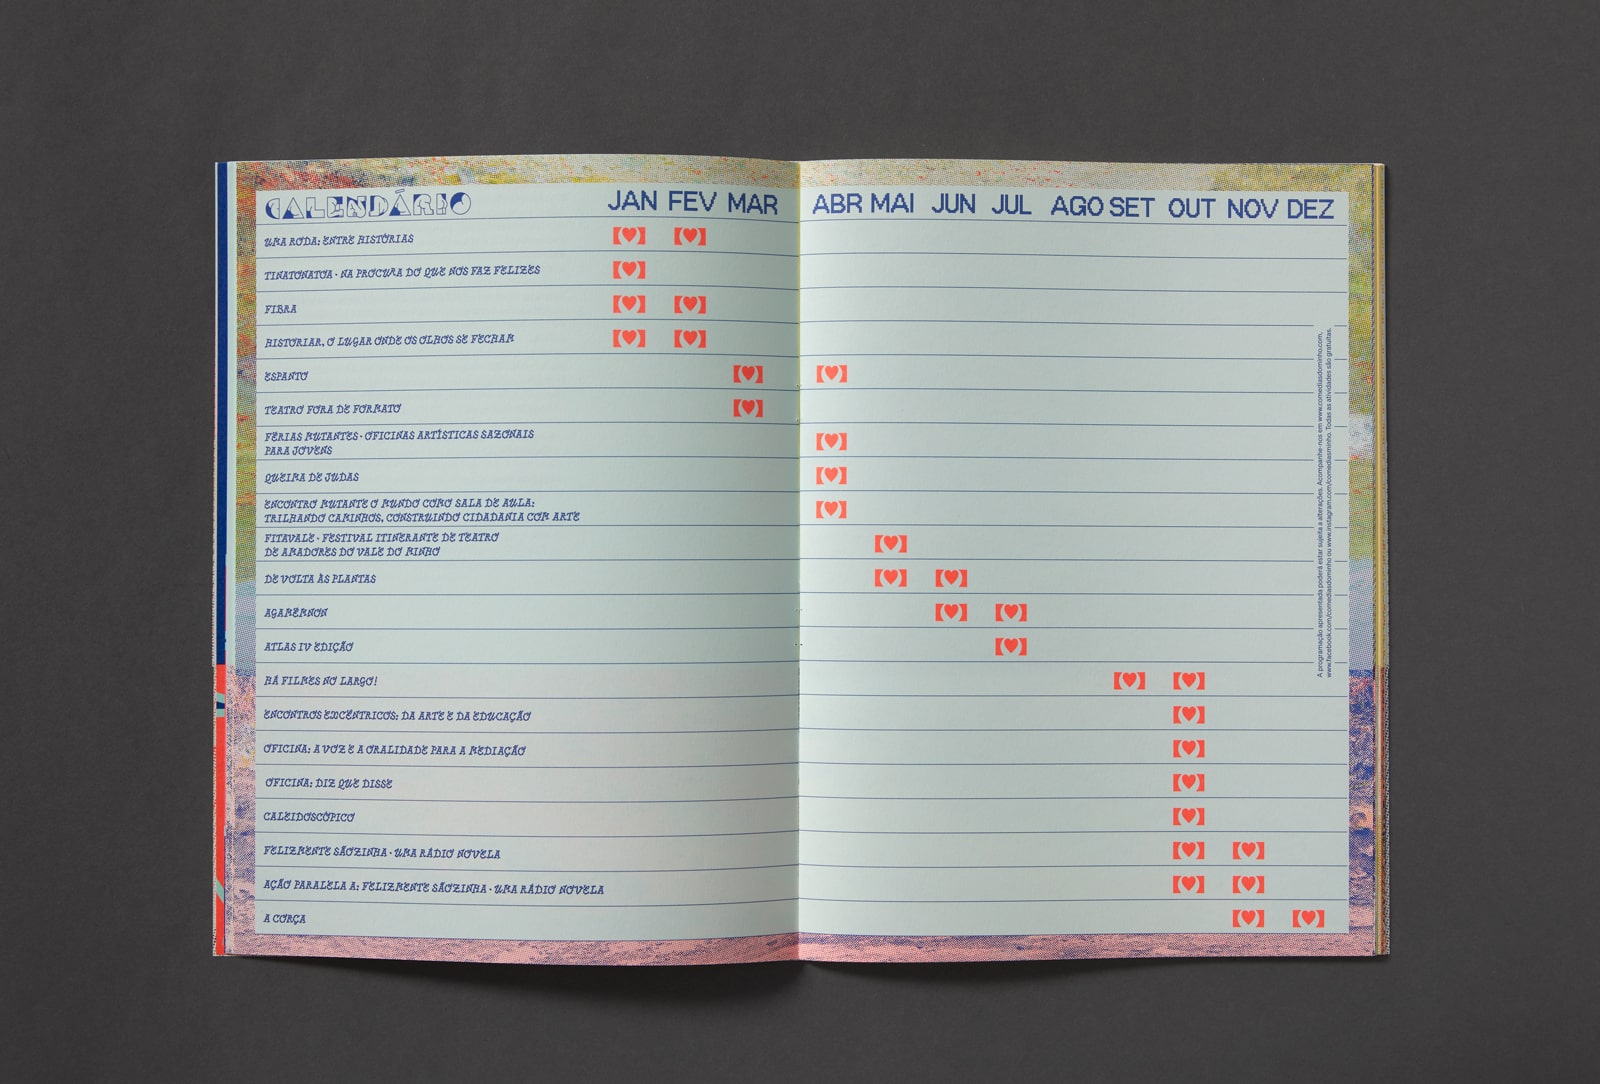 CALENDÁRIO JAN FEV MAR ABR MAI JUN JUL AGO SET OUT NOV DEZ
UMA RODA: ENTRE HISTÓRIAS
TINATONATOA · NA PROCURA DO QUE NOS FAZ FELIZES
FIBRA
HISTORIAR, O LUGAR ONDE OS OLHOS SE FECHAM
ESPANTO
TEATRO FORA DE FORMATO
FÉRIAS MUTANTES · OFICINAS ARTÍSTICAS SAZONAIS
PARA JOVENS
QUEIMA DE JUDAS
ENCONTRO MUTANTE O MUNDO COMO SALA DE AULA:
TRILHANDO CAMINHOS, CONSTRUINDO CIDADANIA COM ARTE
FITAVALE · FESTIVAL ITINERANTE DE TEATRO
DE AMADORES DO VALE DO MINHO
DE VOLTA ÀS PLANTAS
AGAMÉMNON
ATLAS IV EDIÇÃO
HÁ FILMES NO LARGO!
ENCONTROS EXCÊNTRICOS: DA ARTE E DA EDUCAÇÃO
OFICINA: A VOZ E A ORALIDADE PARA A MEDIAÇÃO
OFICINA: DIZ QUE DISSE
CALEIDOSCÓPICO
FELIZMENTE SÃOZINHA · UMA RÁDIO NOVELA
AÇÃO PARALELA A: FELIZMENTE SÃOZINHA · UMA RÁDIO NOVELA
A CORÇA
A programação apresentada poderá estar sujeita a alterações. Acompanhe-nos em www.comediasdominho.com,
www.facebook.com/comediasdominho ou www.instagram.com/comediasminho. Todas as atividades são gratuitas.